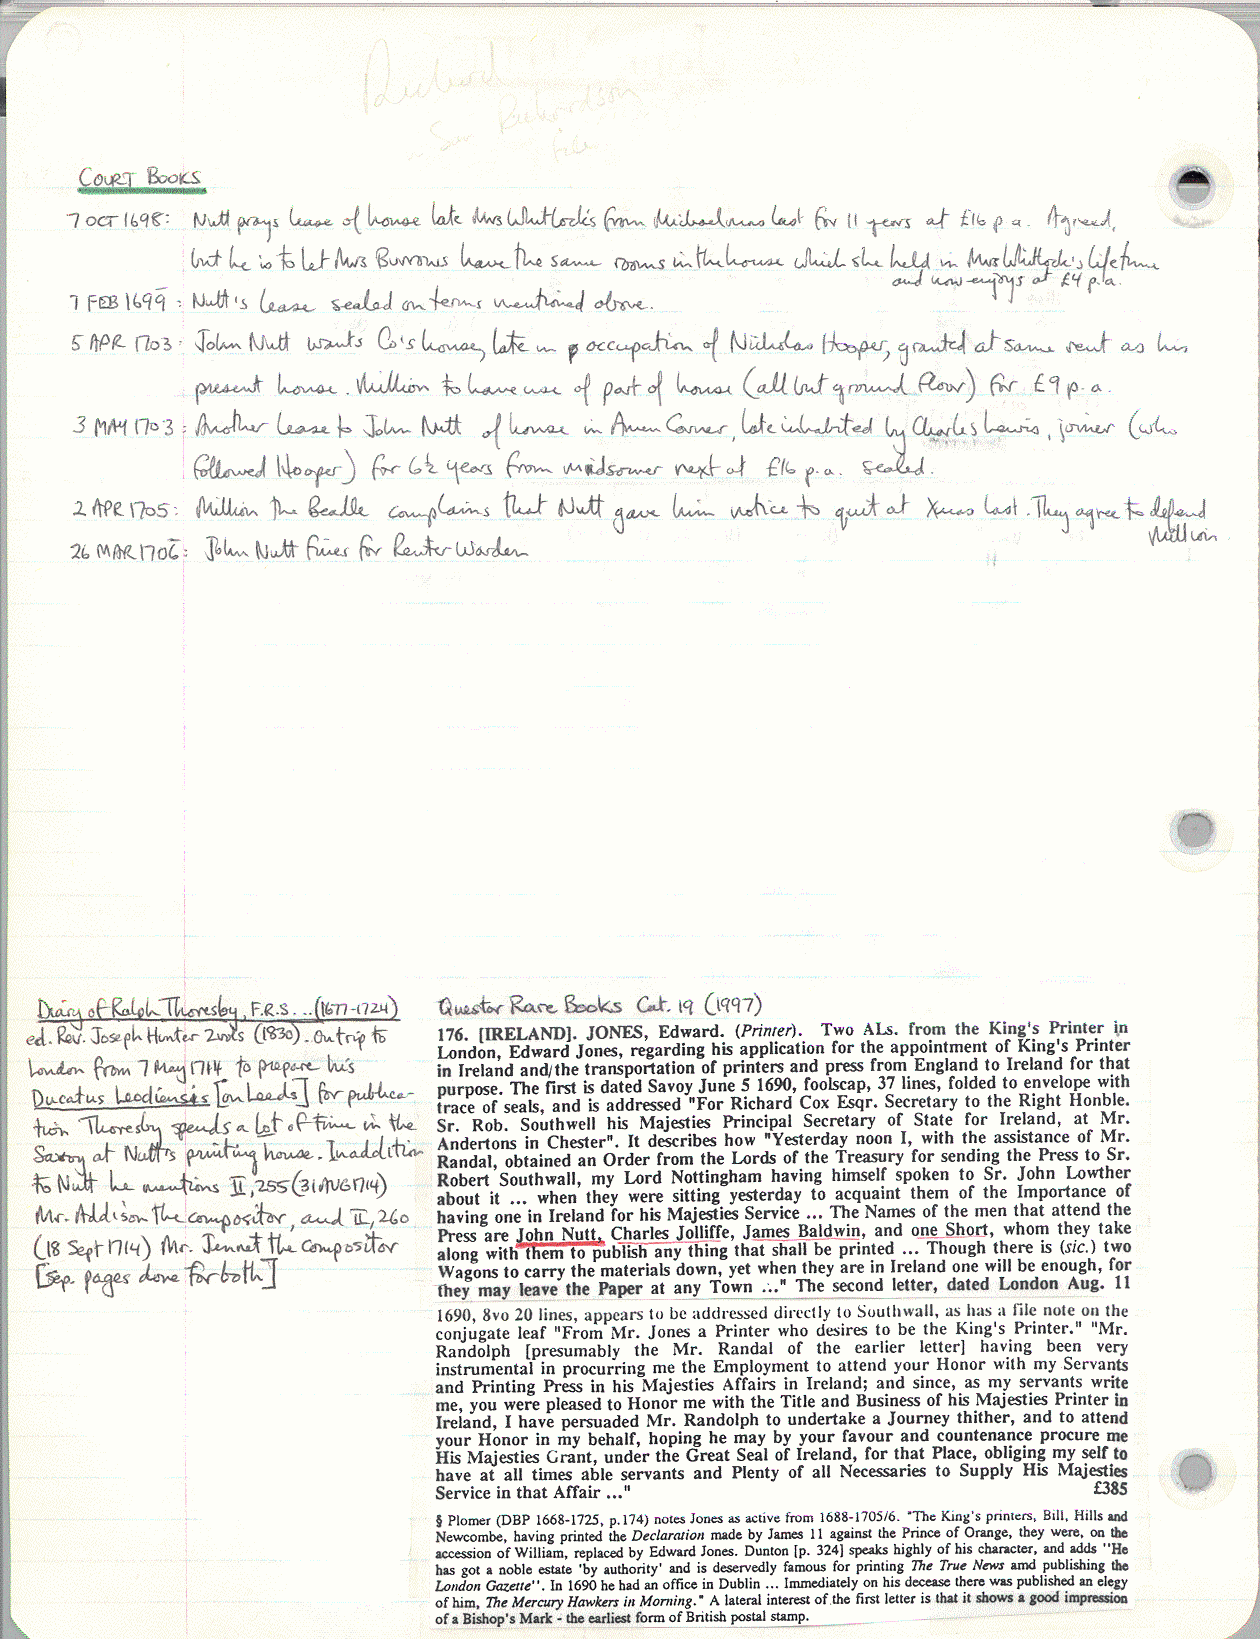 Richard
Sam Richardson
file
COURT BOOKS
7 OCT 1698: Nutt prays lease of house late Mrs Whitlock's from Michaelmas last for 11 years at £16 p.a. Agreed,
but he is to let Mrs Burrows have the same rooms in the house which she held in Mrs Whitlock's lifetime
and now enjoys at £4 p.a.
7 FEB 1699: Nutt's lease sealed on terms mentioned above.
5 APR 1703: John Nutt wants Co's house, late in occupation of Nicholas Hooper, granted at same rent as his
present house. Million to have use of part of house (all but ground floor) for £9 p.a.
3 MAY 1703: Another lease to John Nutt of house in Amen Corner, late inhabited by Charles Lewis, joiner (who
followed Hooper) for 6½ years from midsomer next at £16 p.a. sealed.
2 APR 1705: Million the Beadle complains that Nutt gave him notice to quit at Xmas last. They agree to defend
Million
26 MAR 1706: John Nutt fines for Renter Warden
Diary of Ralph Thoresby, F.R.S. ... (1677-1724)
ed. Rev. Joseph Hunter 2 vols (1830). On trip to
London from 7 May 1714 to prepare his
Ducatus Leodiensis [on Leeds] for publica-
tion Thoresby spends a lot of time in the
Savoy at Nutt's printing house. In addition
to Nutt he mentions II, 255 (31 AUG 1714)
Mr. Addison the compositor, and II, 260
(18 Sept 1714) Mr. Jennet the compositor
[sep. pages done for both]
Questor Rare Books Cat. 19 (1997)
176. [IRELAND]. JONES, Edward. (Printer). Two ALs. from the King's Printer in
London, Edward Jones, regarding his application for the appointment of King's Printer
in Ireland and/the transportation of printers and press from England to Ireland for that
purpose. The first is dated Savoy June 5 1690, foolscap, 37 lines, folded to envelope with
trace of seals, and is addressed "For Richard Cox Esqr. Secretary to the Right Honble.
Sr. Rob. Southwell his Majesties Principal Secretary of State for Ireland, at Mr.
Andertons in Chester". It describes how "Yesterday noon I, with the assistance of Mr.
Randal, obtained an Order from the Lords of the Treasury for sending the Press to Sr.
Robert Southwall, my Lord Nottingham having himself spoken to Sr. John Lowther
about it ... when they were sitting yesterday to acquaint them of the Importance of
having one in Ireland for his Majesties Service ... The Names of the men that attend the
Press are John Nutt, Charles Jolliffe, James Baldwin, and one Short, whom they take
along with them to publish any thing that shall be printed ... Though there is (sic.) two
Wagons to carry the materials down, yet when they are in Ireland one will be enough, for
they may leave the Paper at any Town ..." The second letter, dated London Aug. 11
1690, 8vo 20 lines, appears to be addressed directly to Southwall, as has a file note on the
conjugate leaf "From Mr. Jones a Printer who desires to be the King's Printer." "Mr.
Randolph [presumably the Mr. Randal of the earlier letter] having been very
instrumental in procurring me the Employment to attend your Honor with my Servants
and Printing Press in his Majesties Affairs in Ireland; and since, as my servants write
me, you were pleased to Honor me with the Title and Business of his Majesties Printer in
Ireland, I have persuaded Mr. Randolph to undertake a Journey thither, and to attend
your Honor in my behalf, hoping he may by your favour and countenance procure me
His Majesties Grant, under the Great Seal of Ireland, for that Place, obliging my self to
have at all times able servants and Plenty of all Necessaries to Supply His Majesties
Service in that Affair ..." £385
§ Plomer (DBP 1668-1725, p.174) notes Jones as active from 1688-1705/6. "The King's printers, Bill, Hills and
Newcombe, having printed the Declaration made by James 11 against the Prince of Orange, they were, on the
accession of William, replaced by Edward Jones. Dunton [p. 324] speaks highly of his character, and adds "He
has got a noble estate 'by authority' and is deservedly famous for printing The True News amd publishing the
London Gazette". In 1690 he had an office in Dublin ... Immediately on his decease there was published an elegy
of him, The Mercury Hawkers in Morning." A lateral interest of the first letter is that it shows a good impression
of a Bishop's Mark - the earliest form of British postal stamp.